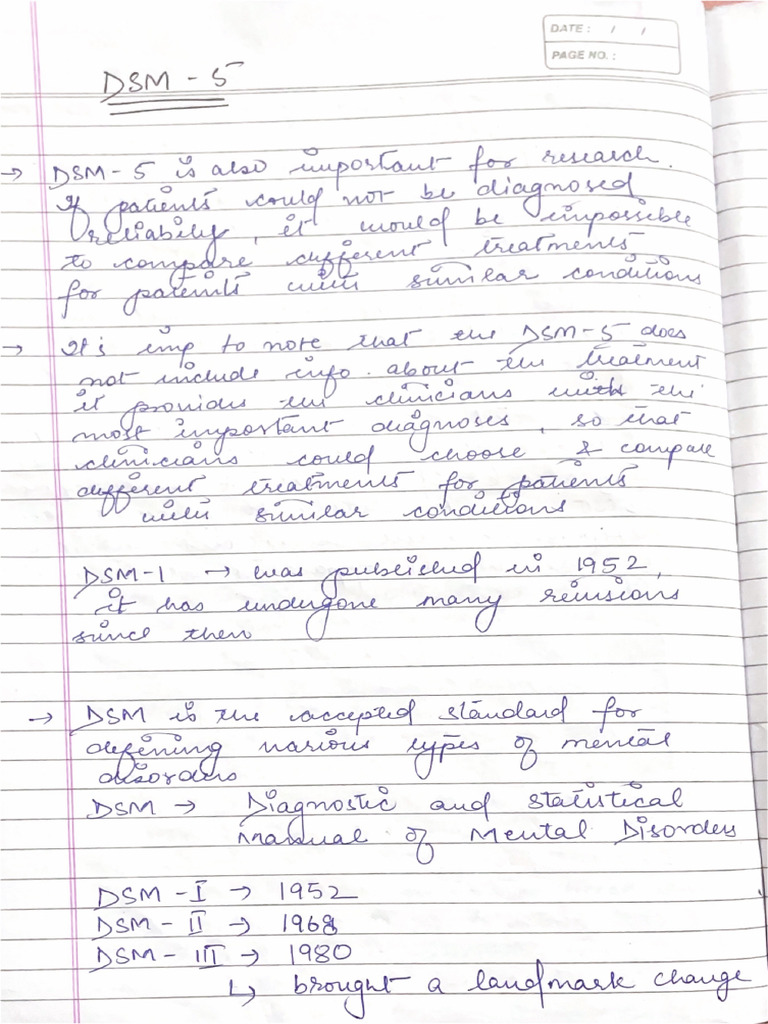 DATE: / /
PAGE NO.:
DSM - 5
→ DSM-5 is also important for research.
If patients could not be diagnosed
reliably, it would be impossible
to compare different treatments
for patients with similar conditions
→ It's imp to note that the DSM-5 does
not include info. about the treatment
it provides the clinicians with the
most important diagnoses, so that
clinicians could choose & compare
different treatments for patients
with similar conditions
DSM-1 → was published in 1952,
it has undergone many revisions
since then
→ DSM is the accepted standard for
defining various types of mental
disorders
DSM → Diagnostic and statistical
manual of Mental Disorders
DSM - I → 1952
DSM - II → 1968
DSM - III → 1980
↳ brought a landmark change